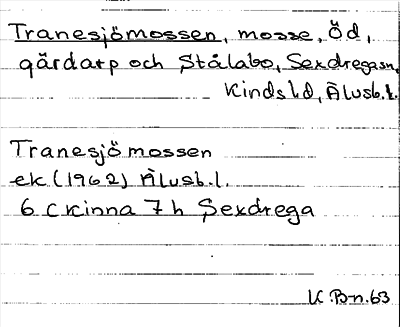 Tranesjömossen, mosse, Öd,
gärdarp och Stålabo, Sexdregasn,
Kinds hd, Älvsb.l.
Tranesjömossen
ek (1962) Älvsb.l.
6 C Kinna 7 h Sexdrega
K Bn. 63